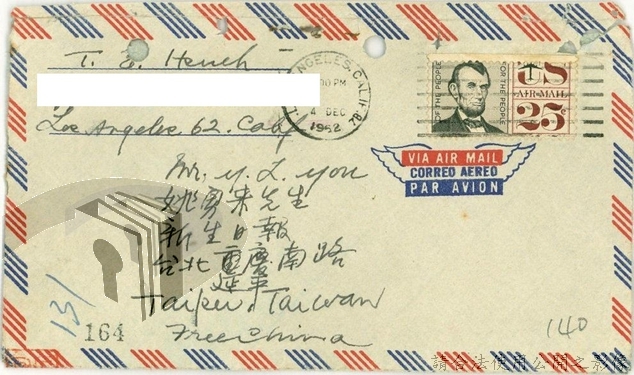 T. E. Hsueh
Los Angeles, 62. Calif
LOS ANGELES, CALIF.
PM
4 DEC
1962
OF THE PEOPLE
FOR THE PEOPLE
US
AIR MAIL
25¢
VIA AIR MAIL
CORREO AEREO
PAR AVION
Mr. Y. L. You
姚勇來先生
新生日報
台北重慶南路
延平
Taipei, Taiwan
Free China
131
164
140
請合法使用公開之影像